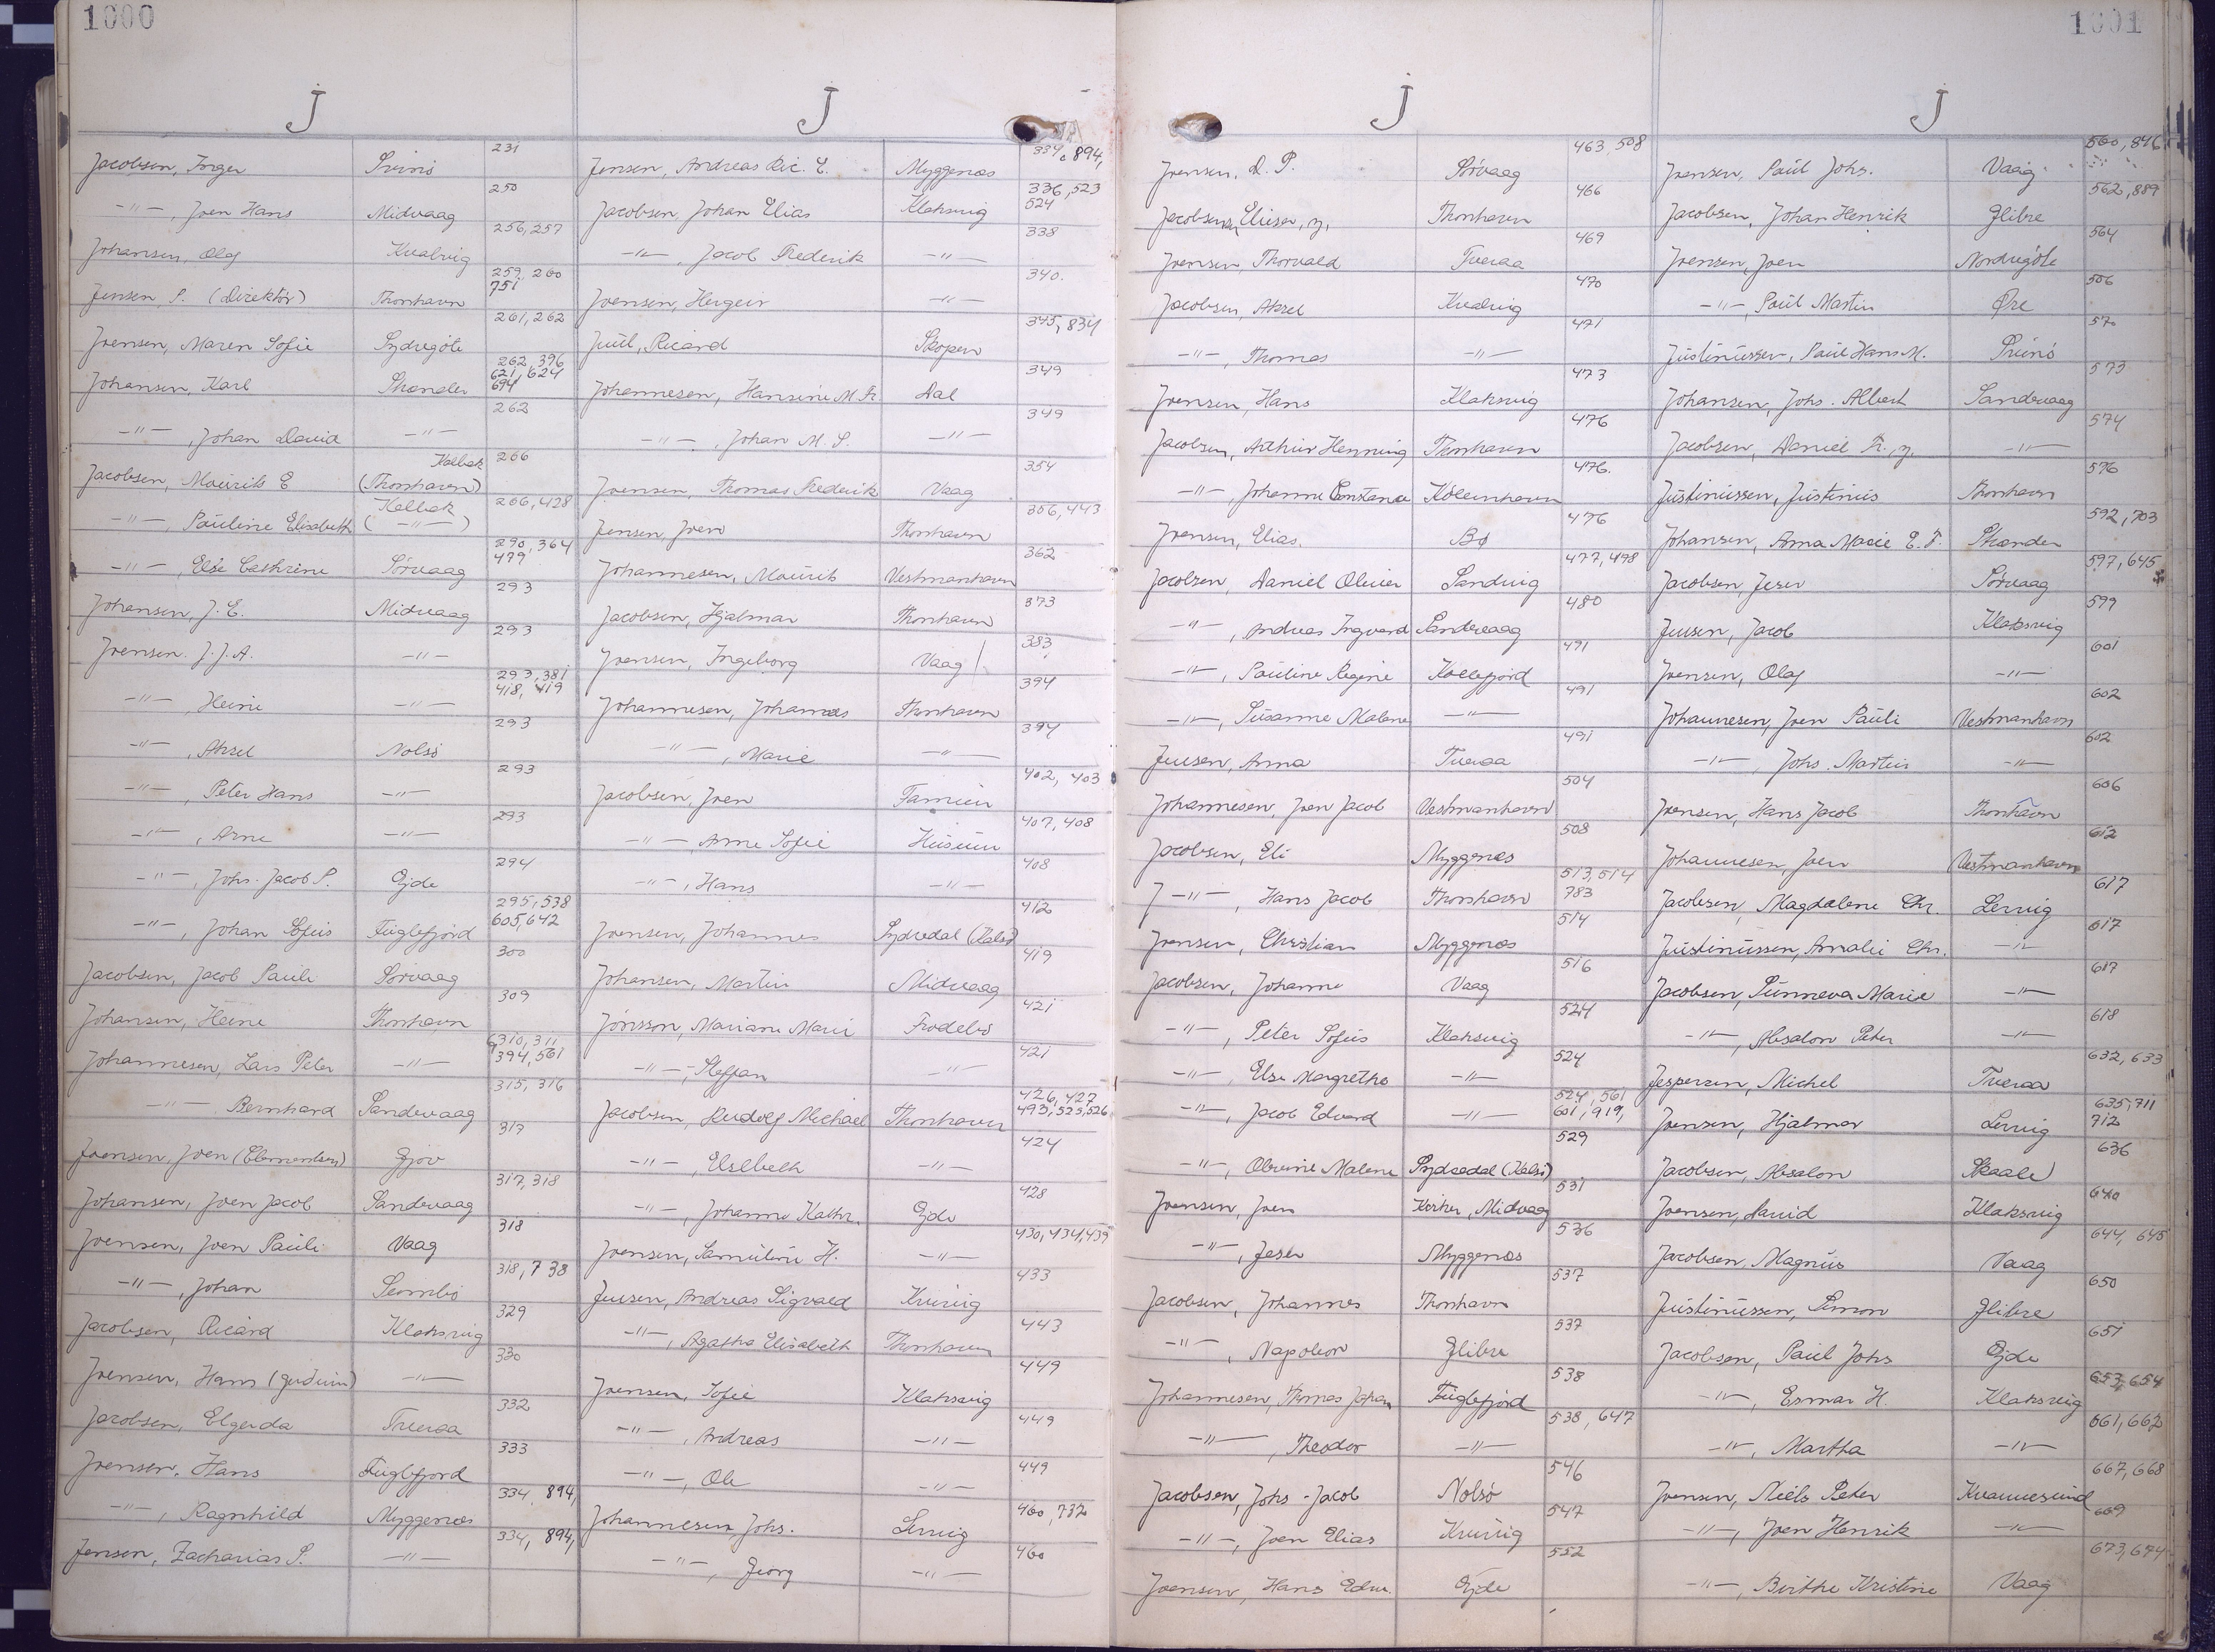 1000
J
J
Jacobsen, Inger Svinö 231
-"-, Joen Hans Midvaag 250
Johansen, Olaf Kvalvig 256, 257
Jensen P. (Direktör) Thorshavn 259, 260 751
Joensen, Maren Sofie Sydregöte 261, 262
Johansen, Karl Skaalev 262, 396 621, 624 694
-"-, Johan David -"- 262
Jacobsen, Mourits E Kalbak (Thorshavn) 266
-"-, Pauline Elisabeth Kalbak ( -"- ) 266, 428
-"-, Else Cathrine Sörvaag 290, 364 479
Johansen, J. E. Midvaag 293
Joensen. J. J. A. -"- 293
-"- , Heini -"- 293, 381 418, 419
-"-, Aksel Nolsö 293
-"-, Peter Hans -"- 293
-"-, Arne -"- 293
-"-, Johs. Jacob P. Ejde 294
-"-, Johan Sofus Fuglefjord 295, 538 605, 642
Jacobsen, Jacob Pauli Sörvaag 300
Johansen, Heine Thorshavn 309
Johannesen, Lars Peter -"- 310, 311 394, 561
-"- Bernhard Sandevaag 315, 316
Joensen, Joen (Clementsen) Gjov 317
Johansen, Joen Jacob Sandevaag 317, 318
Joensen, Joen Pauli Vaag 318
-"-, Johan 318, 738
Jacobsen, Ricard Klaksvig 329
Joensen, Hans -"- 330
Jacobsen, Elgerda Tveraa 332
Joensen, Hans Fuglefjord 333
-"-, Ragnhild Myggenæs 334, 894,
Jensen, Zacharias P. -"- 334, 894,
Jensen, Andreas Ric. E. Myggenæs 334, 894,
Jacobsen, Johan Elias Klaksvig 336, 523 524
-"-, Jacob Frederik -"- 338
Joensen, Hergeir -"- 340.
Juul, Ricard Skopen 345, 834
Johannesen, Hansine M. Fr. Dal 349
-"-, Johan M. P. -"- 349
Joensen, Thomas Frederik Vaag 354
Jensen, Joen Thorshavn 356, 443
Johannesen, Mourits Vestmanhavn 362
Jacobsen, Hjalmar Thorshavn 373
Joensen, Ingeborg Vaag 383
Johannesen, Johannes Thorshavn 394
-"-, Marie -"- 394
Jacobsen, Joen Famien 402, 403
-"-, Anne Sofie Husum 407, 408
-"-, Hans -"- 408
Joensen, Johannes Sydredal (Kalsö) 412
Johansen, Martin Midvaag 419
Jónsson, Mariane Marie Frodebö 421
-"-, Steffan -"- 421
Jacobsen, Rudolf Michael Thorshavn 426, 427 493, 525, 526
-"-, Elsebeth -"- 424
-"-, Johanne Kathr. Ejde 428
Joensen, Samuline H. -"- 430, 434, 439
Jensen, Andreas Sigvald Kvivig 433
-"-, Agatha Elisabeth Thorshavn 443
Joensen, Sofie Klaksvig 449
-"-, Andreas -"- 449
-"-, Ole -"- 449
Johannesen Johs. Lervig 460, 732
-"-, Georg -"- 460
1001
J
J
Joensen, D. P. Sörvaag 463, 508
Jacobsen, Elieser, Thorshavn 466
Joensen, Thorvald Tveraa 469
Jacobsen, Aksel Kvalvig 470
-"-, Thomas -"- 471
Joensen, Hans Klaksvig 473
Jacobsen, Arthur Henning Thorshavn 476
-"-, Johanne Constance Köbenhavn 476.
Joensen, Elias. Bö 476
Jacobsen, Daniel Olivier Sandvig 477, 498
-"-, Andreas Ingvard Sandevaag 480
-"-, Pauline Regine Kollefjord 491
-"-, Susanne Malene -"- 491
Jensen, Anna Tveraa 491
Johannesen, Joen Jacob Vestmanhavn 504
Jacobsen, Eli Myggenæs 508
J -"-, Hans Jacob Thorshavn 513, 514 783
Joensen, Christian Myggenæs 514
Jacobsen, Johanne Vaag 516
-"-, Peter Sofus Klaksvig 524
-"-, Else Margrethe -"- 524
-"-, Jacob Edvard -"- 524, 561 601, 919,
-"-, Olevine Malene Sydredal (Kalsö) 529
Joensen, Joen Kirker, Midvaag 531
-"-, Jeser Myggenæs 536
Jacobsen, Johannes Thorshavn 537
-"-, Napoleon Glibre 537
Johannesen, Thomas Johan Fuglefjord 538
-"-, Theodor -"- 538, 647
Jacobsen, Johs - Jacob Nolsö 546
-"-, Joen Elias Kvivig 547
Joensen, Hans Edm. Ejde 552
Joensen, Paul Johs. Vaag. 560, 846
Jacobsen, Johan Henrik Glibre 562, 889
Joensen, Joen Nordregöte 564
-"-, Paul Martin Øre 566
Justinussen, Paul Hans M. Svinö 570
Johansen, Johs. Albert Sandevaag 573
Jacobsen, Daniel Fr. -"- 574
Justinussen, Justinus Thorshavn 576
Johansen, Anna Marie E. F. 592, 703
Jacobsen, Jeser Sörvaag 597, 645
Jensen, Jacob Klaksvig 599
Joensen, Olaf -"- 601
Johannesen, Joen Pauli Vestmanhavn 602
-"-, Johs. Martin -"- 602
Joensen, Hans Jacob Thorshavn 606
Johannesen, Joen Vestmanhavn 612
Jacobsen, Magdalene Chr. Lervig 617
Justinussen, Amalie Chr. -"- 617
Jacobsen, Sunneva Marie -"- 617
-"-, Absalon Peter -"- 618
Jespersen, Michel Tveraa 632, 633
Joensen, Hjalmar Lervig 635, 711 712
Jacobsen, Absalon Skaale 636
Joensen, David Klaksvig 640
Jacobsen, Magnus Vaag 644, 645
Justinussen, Simon Glibre 650
Jacobsen, Paul Johs Ejde 651
-"-, Esmar H. Klaksvig 653, 654
-"-, Martha -"- 661, 662
Joensen, Niels Peter Kvannesund 667, 668
-"-, Joen Henrik -"- 669
-"-, Birthe Kristine Vaag 673, 674